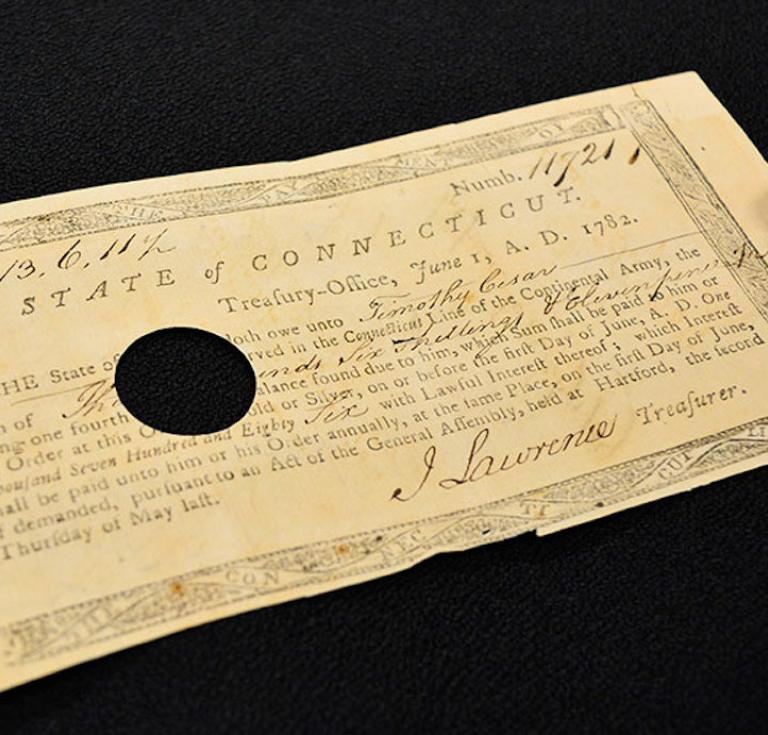 THE PAY
Numb. 11721
13. 6. 11½
STATE of CONNECTICUT.
Treasury-Office, June 1, A. D. 1782.
HE State of doth owe unto Timothy Cesar
rved in the Connecticut Line of the Continental Army, the
n of Six Shillings & Eleven pence
ng one fourth alance found due to him, which Sum ſhall be paid to him or
Order at this O old or Silver, on or before the firſt Day of June, A. D. One
ouſand Seven Hundred and Eighty Six with Lawful Intereſt thereof; which Intereſt
hall be paid unto him or his Order annually, at the ſame Place, on the firſt Day of June,
f demanded, purſuant to an Act of the General Aſſembly, held at Hartford, the ſecond
Thurſday of May laſt.
J Lawrence Treaſurer.
CON NEC TI CUT